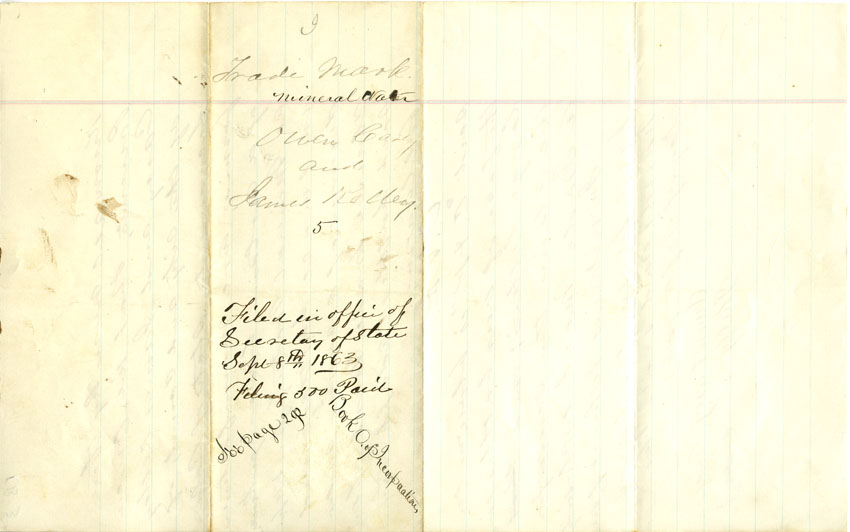 Trade Mark.
mineral Water
Owen Casey
and
James Kelley.
5
Filed in office of
Secretary of State
Sept 8th 1863
Filing 500 Paid
page 292
Book of Incorporations